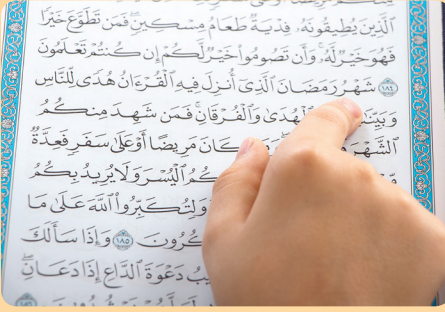 ٱلَّذِينَ يُطِيقُونَهُۥ فِدْيَةٌ طَعَامُ مِسْكِينٍ ۖ فَمَن تَطَوَّعَ خَيْرًا
فَهُوَ خَيْرٌ لَّهُۥ ۚ وَأَن تَصُومُوا۟ خَيْرٌ لَّكُمْ ۖ إِن كُنتُمْ تَعْلَمُونَ
١٨٤ شَهْرُ رَمَضَانَ ٱلَّذِىٓ أُنزِلَ فِيهِ ٱلْقُرْءَانُ هُدًى لِّلنَّاسِ
ٱلْهُدَىٰ وَٱلْفُرْقَانِ ۚ فَمَن شَهِدَ مِنكُمُ
ٱلشَّهْرَ كَانَ مَرِيضًا أَوْ عَلَىٰ سَفَرٍ فَعِدَّةٌ
ٱلْيُسْرَ وَلَا يُرِيدُ بِكُمُ
وَلِتُكَبِّرُوا۟ ٱللَّهَ عَلَىٰ مَا
١٨٥ وَإِذَا سَأَلَكَ
دَعْوَةَ ٱلدَّاعِ إِذَا دَعَانِ ۖ